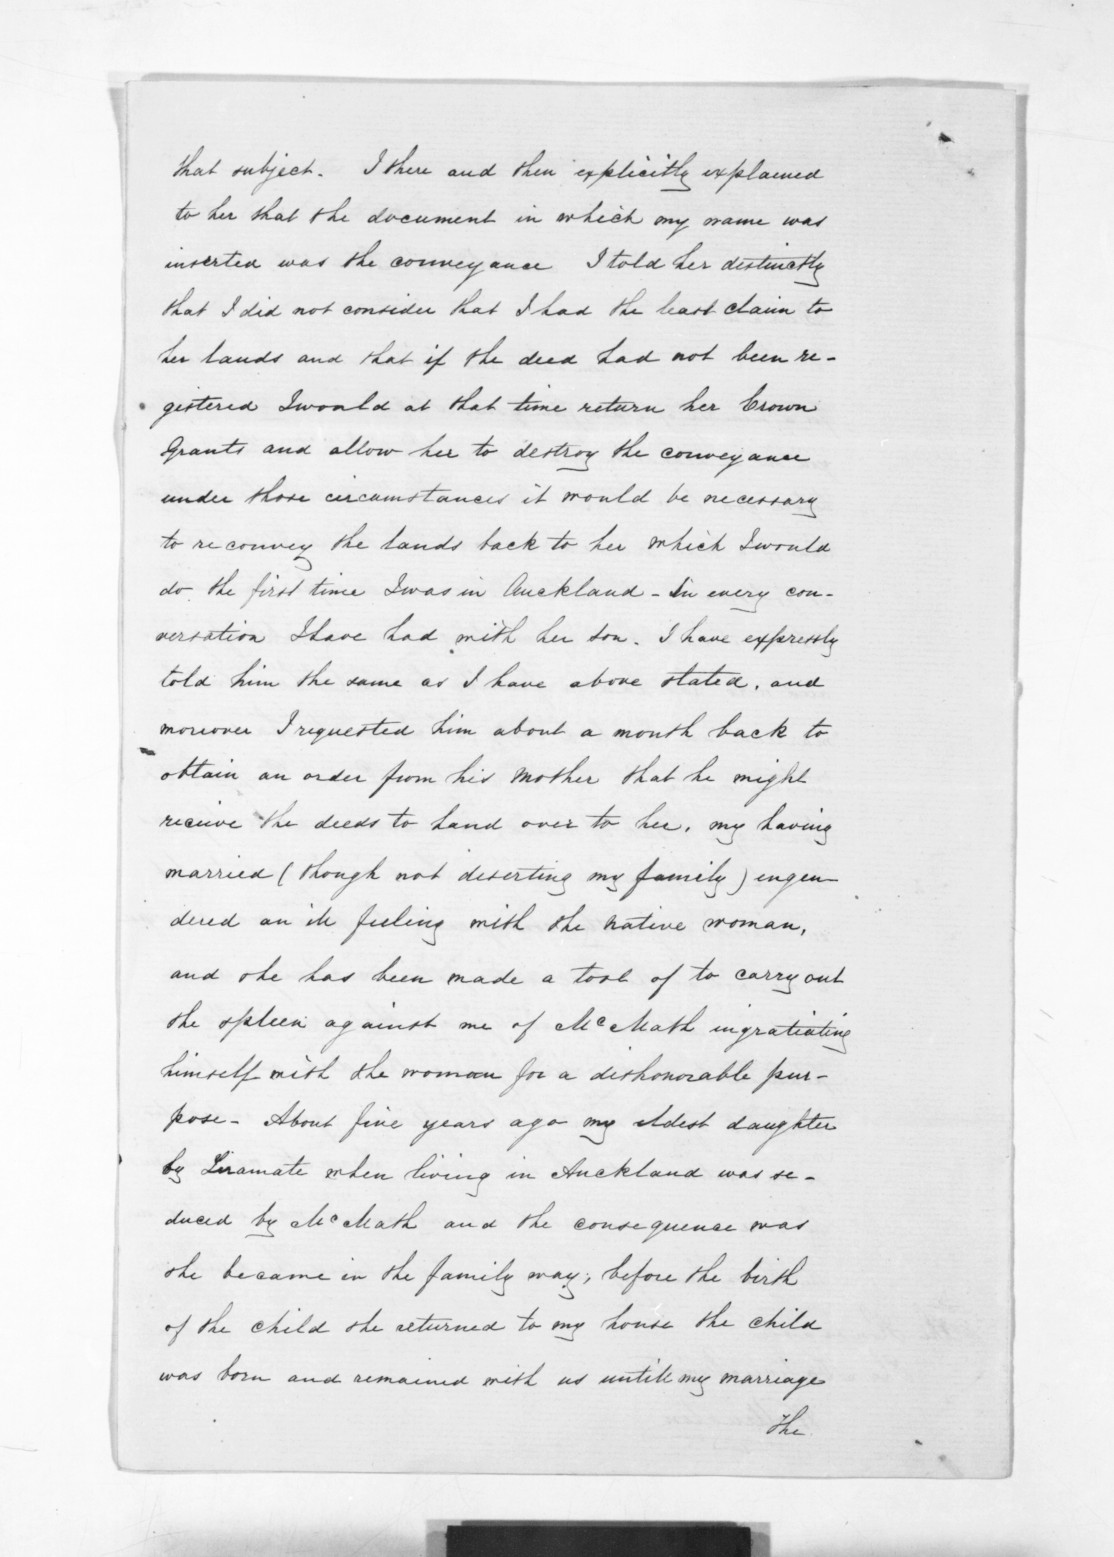 that subject. I there and then explicitly explained
to her that the document in which my name was
inserted was the conveyance I told her distinctly
that I did not consider that I had the least claim to
her lands and that if the deed had not been re-
gistered I would at that time return her Crown
Grants and allow her to destroy the conveyance
under those circumstances it would be necessary
to reconvey the lands back to her which I would
do the first time I was in Auckland - In every con-
versation I have had with her son. I have expressly
told him the same as I have above stated, and
moreover I requested him about a month back to
obtain an order from his mother that he might
receive the deeds to hand over to her, my having
married (though not deserting my family) engen-
dered an ill feeling with the native woman,
and she has been made a tool of to carry out
the spleen against me of McMath ingratiating
himself with the woman for a dishonorable pur-
pose - About five years ago my eldest daughter
by when living in Auckland was se-
duced by McMath and the consequence was
she became in the family way; before the birth
of the child she returned to my house the child
was born and remained with us untill my marriage
The